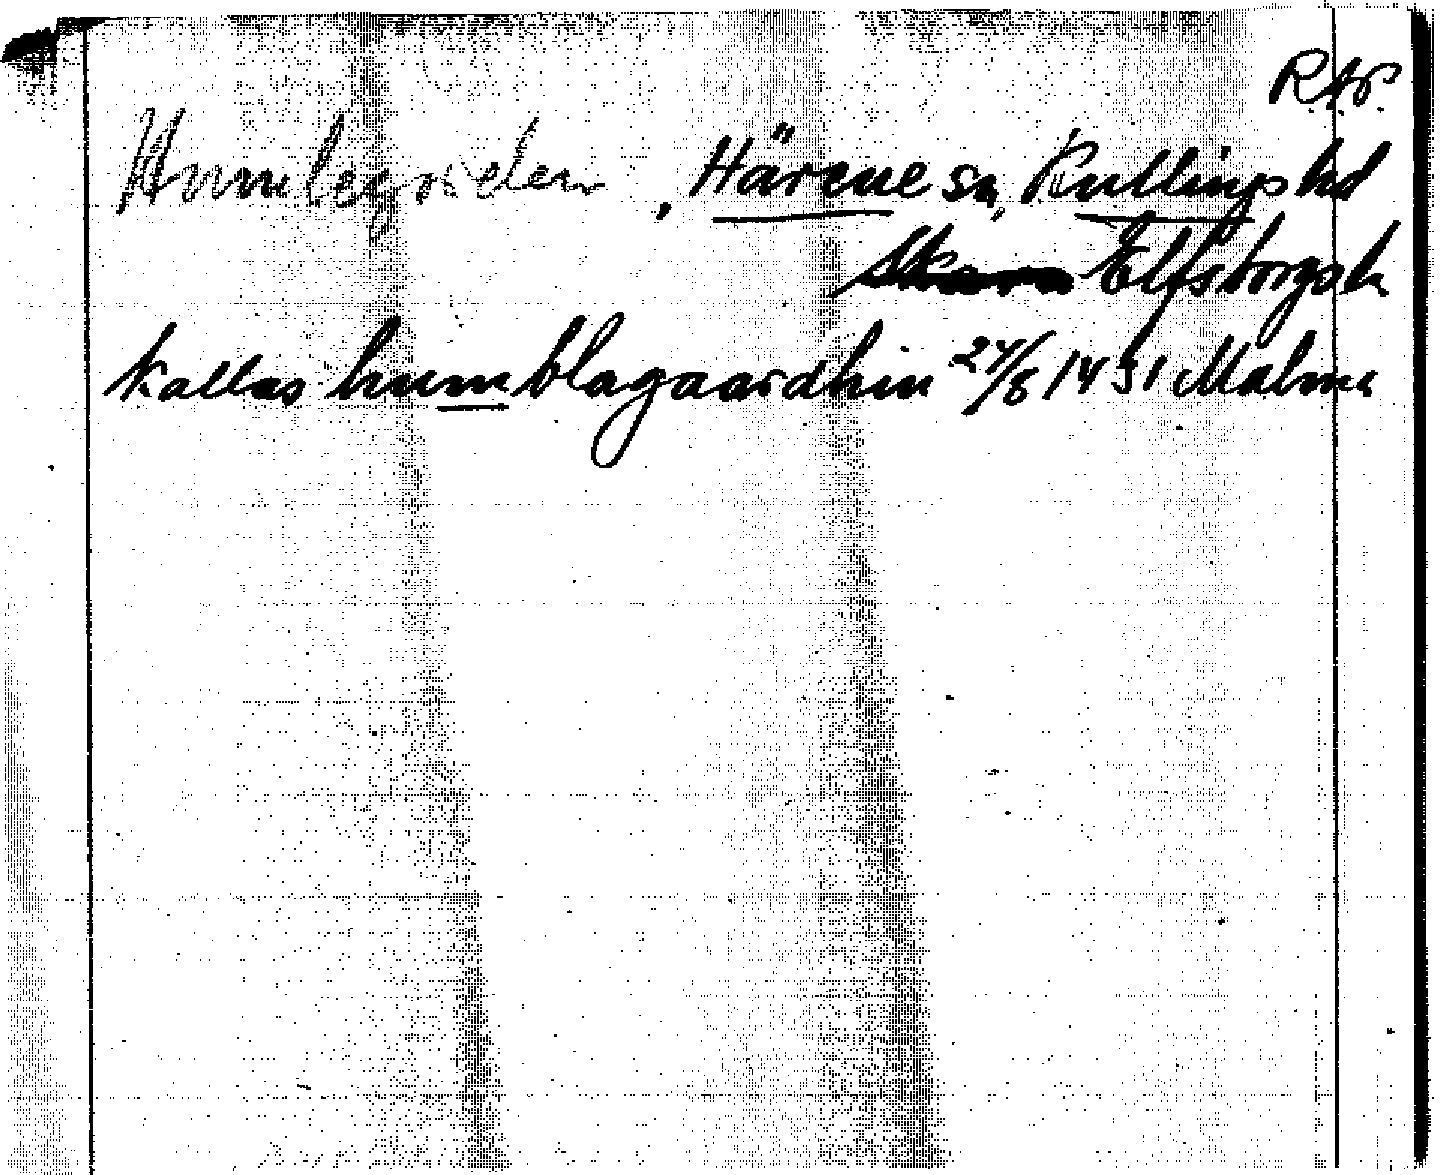 R.A.P.
Humlegården, Härene sn, Kullings hd
Skara Elfsborgs l.
kallas humblagaardhin 27/8 1431 Malma